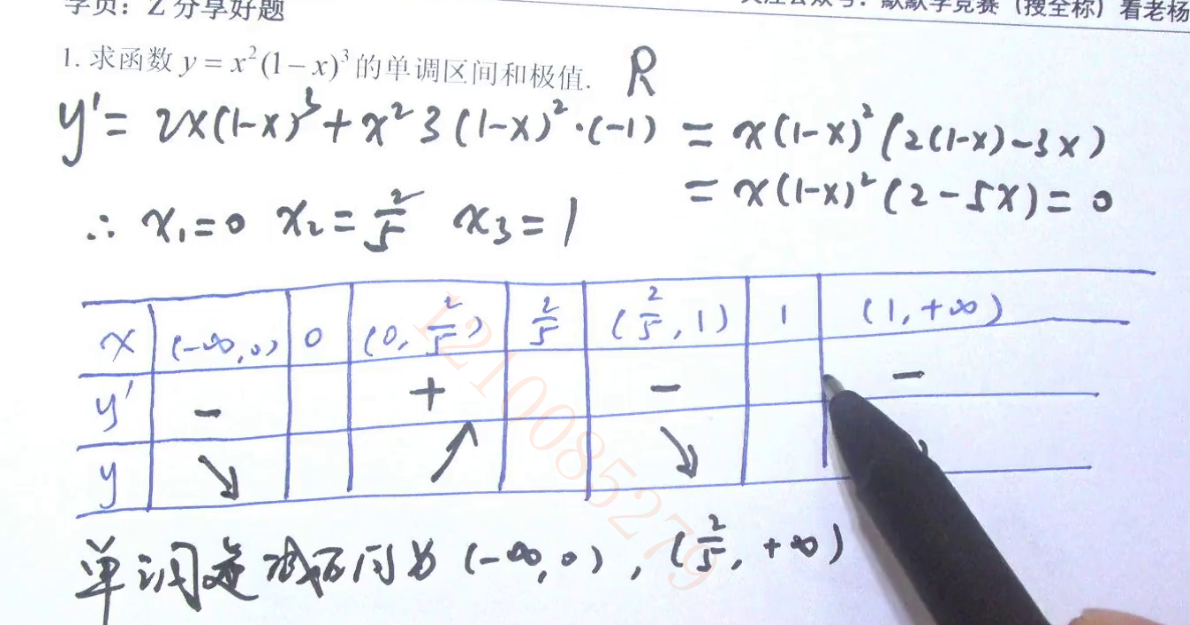 学员：Z 分享好题
关注公众号：默默学竞赛（搜全称）看老杨
1. 求函数 y = x²(1−x)³ 的单调区间和极值. R
y' = 2x(1-x)³ + x² 3(1-x)²·(-1) = x(1-x)²(2(1-x)-3x)
= x(1-x)²(2-5x) = 0
∴ x₁=0 x₂=2/5 x₃=1
x (-∞,0) 0 (0, 2/5) 2/5 (2/5, 1) 1 (1, +∞)
y' - + - -
y ↘ ↗ ↘
单调递减区间为 (-∞, 0), (2/5, +∞)
1210085279